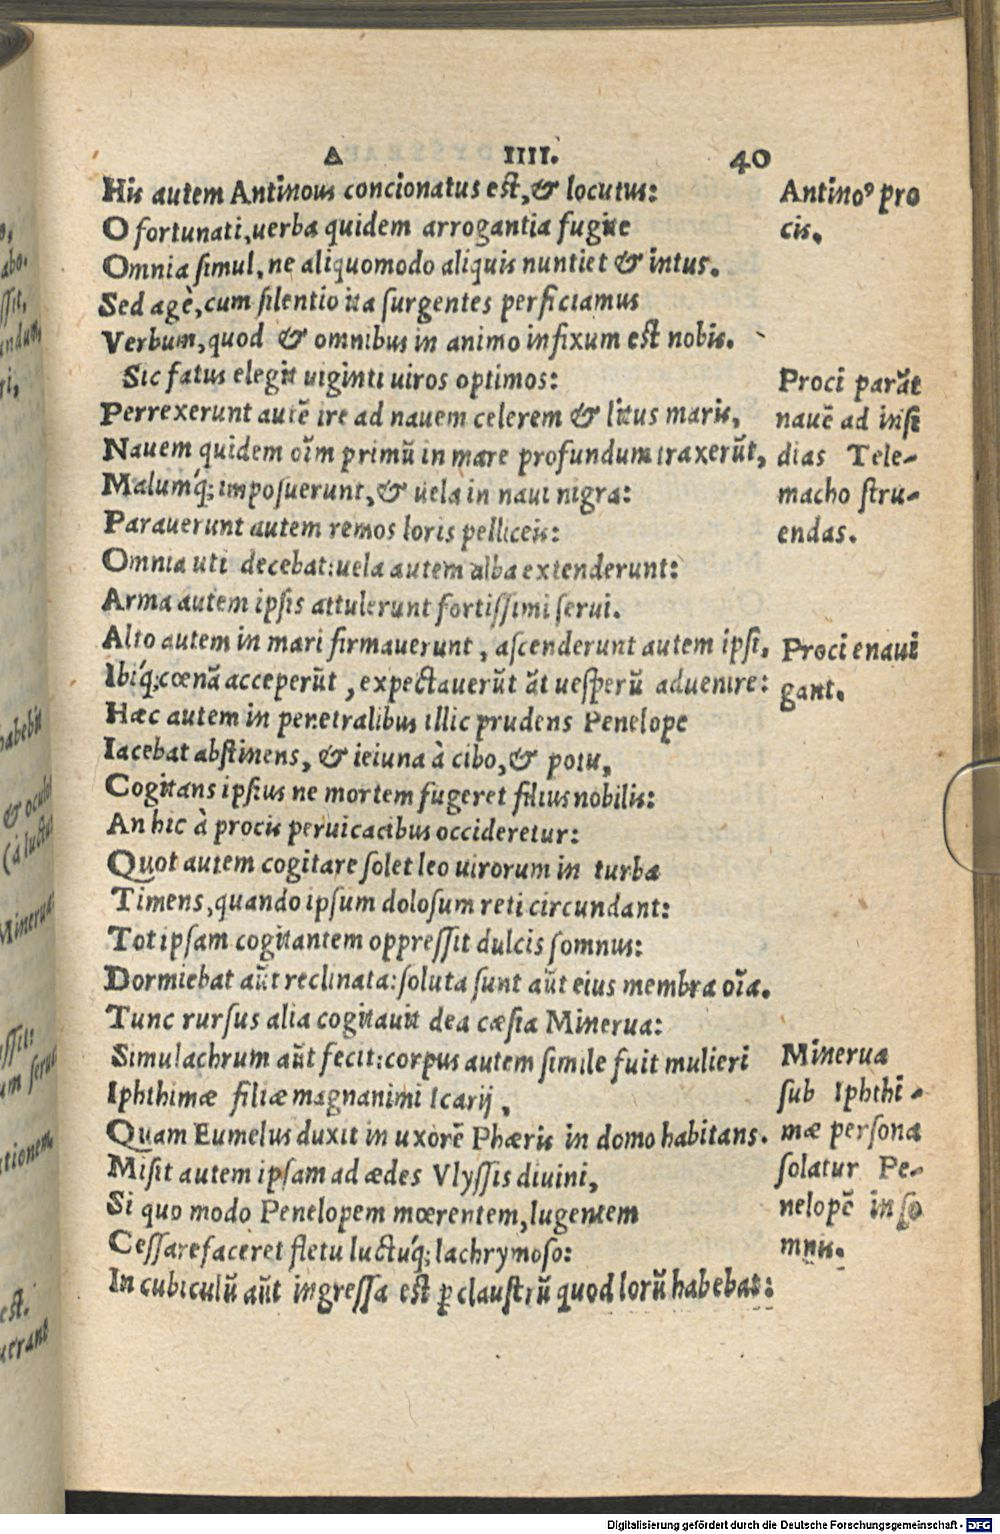 Δ IIII. 40
His autem Antinous concionatus est, & locutus:
O fortunati, uerba quidem arrogantia fugite
Omnia simul, ne aliquomodo aliquis nuntiet & intus.
Sed agè, cum silentio ita surgentes perficiamus
Verbum, quod & omnibus in animo infixum est nobis.
Sic fatus elegit uiginti uiros optimos:
Perrexerunt autē ire ad nauem celerem & litus maris,
Nauem quidem oīm primū in mare profundum traxerūt,
Malumq́; imposuerunt, & uela in naui nigra:
Parauerunt autem remos loris pelliceis:
Omnia uti decebat: uela autem alba extenderunt:
Arma autem ipsis attulerunt fortissimi serui.
Alto autem in mari firmauerunt, ascenderunt autem ipsi,
Ibiq́; cœnā acceperūt, expectauerūt āt uesperū aduenire:
Hæc autem in penetralibus illic prudens Penelope
Iacebat abstinens, & ieiuna à cibo, & potu,
Cogitans ipsius ne mortem fugeret filius nobilis:
An hic à procis peruicacibus occideretur:
Quot autem cogitare solet leo uirorum in turba
Timens, quando ipsum dolosum reti circundant:
Tot ipsam cogitantem oppressit dulcis somnus:
Dormiebat aūt reclinata: soluta sunt aūt eius membra oīa.
Tunc rursus alia cogitauit dea cæsia Minerua:
Simulachrum aūt fecit: corpus autem simile fuit mulieri
Iphthimæ filiæ magnanimi Icarij,
Quam Eumelus duxit in uxorē Phæris in domo habitans.
Misit autem ipsam ad ædes Vlyssis diuini,
Si quo modo Penelopem mœrentem, lugentem
Cessare faceret fletu luctuq́; lachrymoso:
In cubiculū aūt ingressa est ꝑ claustrū quod lorū habebat:
Antinoꝰ pro
cis.
Proci parāt
nauē ad insi
dias Tele-
macho stru-
endas.
Proci enaui
gant.
Minerua
sub Iphthi-
mæ persona
solatur Pe-
nelopē in so
mnis.
Digitalisierung gefördert durch die Deutsche Forschungsgemeinschaft - DFG